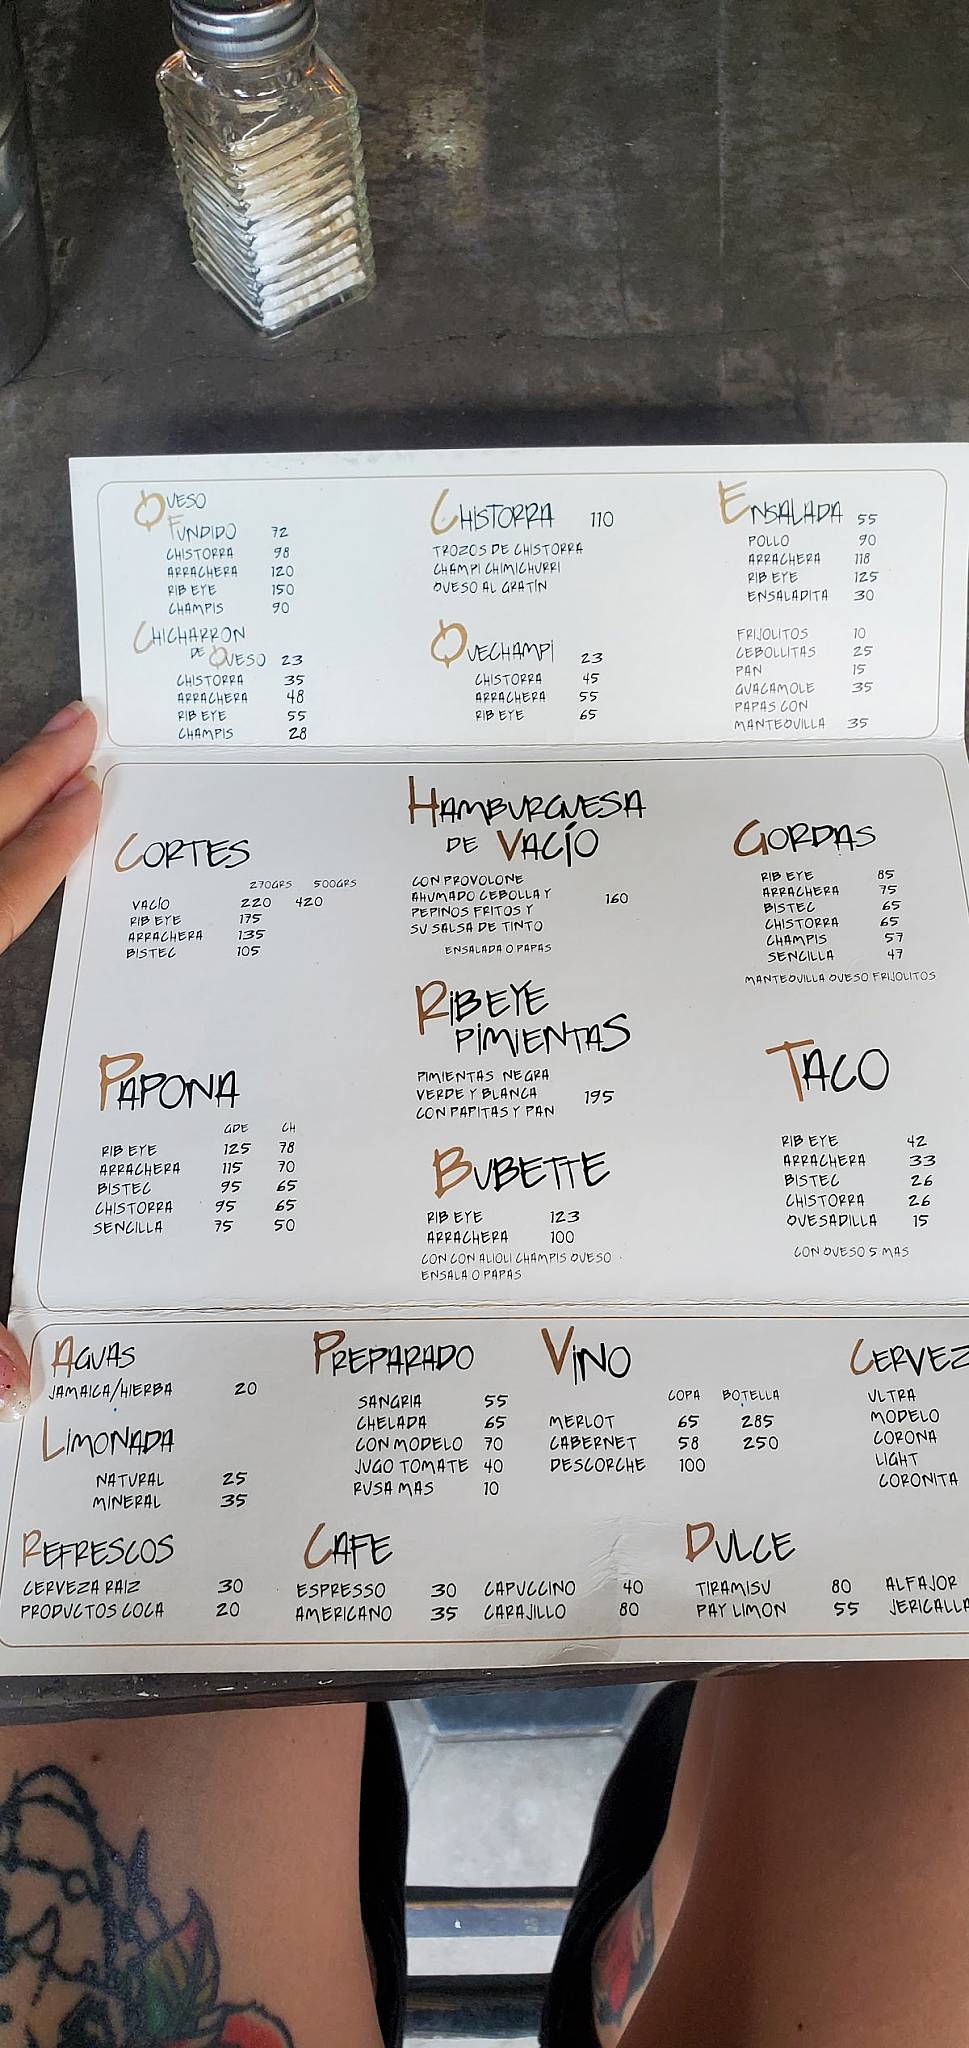 QUESO
FUNDIDO 72
CHISTORRA 98
ARRACHERA 120
RIB EYE 150
CHAMPIS 90
CHICHARRON
DE QUESO 23
CHISTORRA 35
ARRACHERA 48
RIB EYE 55
CHAMPIS 28
CHISTORRA 110
TROZOS DE CHISTORRA
CHAMPI CHIMICHURRI
QUESO AL GRATÍN
QUECHAMPI 23
CHISTORRA 45
ARRACHERA 55
RIB EYE 65
ENSALADA 55
POLLO 90
ARRACHERA 118
RIB EYE 125
ENSALADITA 30
FRIJOLITOS 10
CEBOLLITAS 25
PAN 15
GUACAMOLE 35
PAPAS CON
MANTEQUILLA 35
CORTES
270GRS 500GRS
VACÍO 220 420
RIB EYE 175
ARRACHERA 135
BISTEC 105
PAPONA
GDE CH
RIB EYE 125 78
ARRACHERA 115 70
BISTEC 95 65
CHISTORRA 95 65
SENCILLA 75 50
HAMBURGUESA
DE VACÍO
CON PROVOLONE
AHUMADO CEBOLLA Y
PEPINOS FRITOS Y 160
SU SALSA DE TINTO
ENSALADA O PAPAS
RIBEYE
PIMIENTAS
PIMIENTAS NEGRA
VERDE Y BLANCA 195
CON PAPITAS Y PAN
BUBETTE
RIB EYE 123
ARRACHERA 100
CON CON ALIOLI CHAMPIS QUESO
ENSALA O PAPAS
GORDAS
RIB EYE 85
ARRACHERA 75
BISTEC 65
CHISTORRA 65
CHAMPIS 57
SENCILLA 47
MANTEQUILLA QUESO FRIJOLITOS
TACO
RIB EYE 42
ARRACHERA 33
BISTEC 26
CHISTORRA 26
QUESADILLA 15
CON QUESO 5 MAS
AGUAS
JAMAICA/HIERBA 20
LIMONADA
NATURAL 25
MINERAL 35
PREPARADO
SANGRIA 55
CHELADA 65
CON MODELO 70
JUGO TOMATE 40
RUSA MAS 10
VINO
COPA BOTELLA
MERLOT 65 285
CABERNET 58 250
DESCORCHE 100
CERVEZ
ULTRA
MODELO
CORONA
LIGHT
CORONITA
REFRESCOS
CERVEZA RAIZ 30
PRODUCTOS COCA 20
CAFE
ESPRESSO 30 CAPUCCINO 40
AMERICANO 35 CARAJILLO 80
DULCE
TIRAMISU 80 ALFAJOR
PAY LIMON 55 JERICALLA